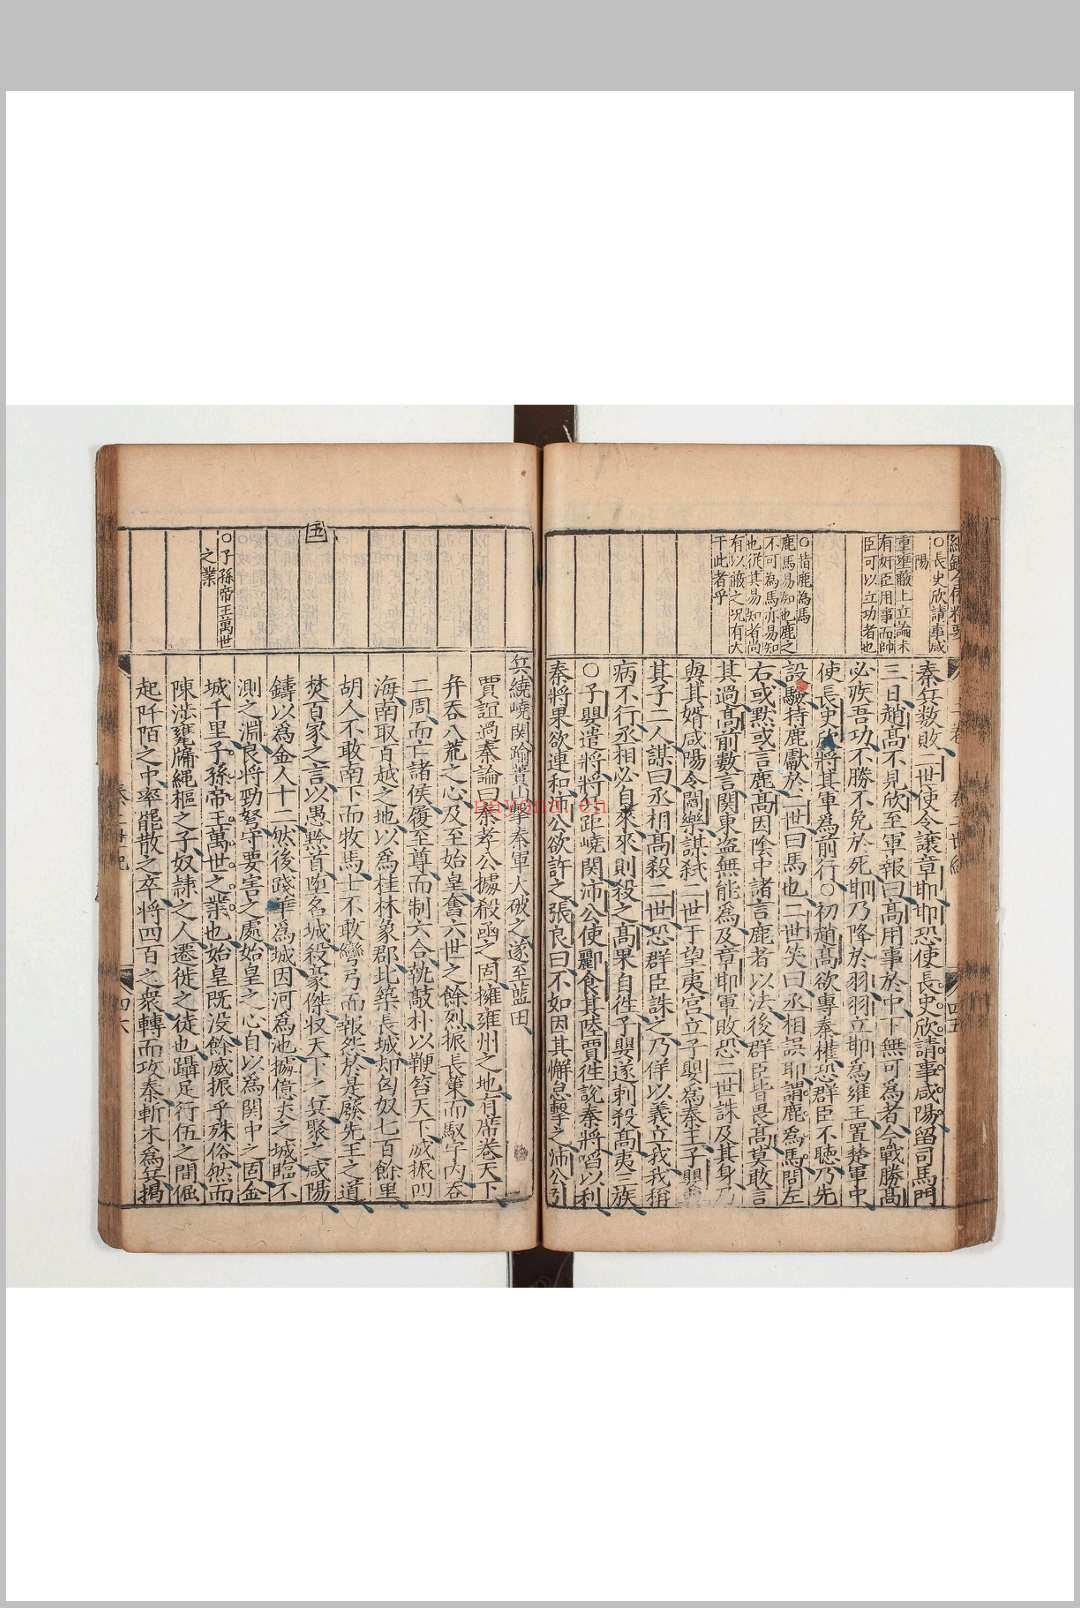 ○長史欣請事咸
陽
重壅蔽上立論未
有奸臣用事而帥
臣可以立功者也
○指鹿為馬
鹿馬易知也鹿之
不可為馬亦易知
也從其易知者尚
有以蔽之況有大
于此者乎
秦兵數敗二世使令讓章邯邯恐使長史欣請事咸陽留司馬門
三日趙高不見欣至軍報曰高用事於中下無可為者今戰勝高
必疾吾功不勝不免於死邯乃降於羽羽立邯為雍王置楚軍中
使長史欣將其軍為前行○初趙高欲專秦權恐群臣不聽乃先
設驗持鹿獻於二世曰馬也二世笑曰丞相誤耶謂鹿為馬問左
右或默或言鹿高因陰中諸言鹿者以法後群臣皆畏高莫敢言
其過高前數言関東盗無能為及章邯軍敗恐二世誅及其身乃
與其婿咸陽令閻樂謀弒二世于望夷宮立子嬰為秦王子嬰與
其子二人謀曰丞相高殺二世恐群臣誅之乃佯以義立我我稱
病不行丞相必自來來則殺之高果自徃子嬰遂刺殺高夷三族
○子嬰遣將將兵距嶢関沛公使酈食其陸賈徃說秦將啗以利
秦將果欲連和沛公欲許之張良曰不如因其懈怠擊之沛公引
兵繞嶢関踰蕢山擊秦軍大破之遂至藍田
賈誼過秦論曰秦孝公據殽函之固擁雍州之地有席卷天下
并吞八荒之心及至始皇奮六世之餘烈振長策而馭宇內吞
二周而亡諸侯履至尊而制六合執敲朴以鞭笞天下威振四
海南取百越之地以為桂林象郡北築長城却匈奴七百餘里
胡人不敢南下而牧馬士不敢彎弓而報怨於是廢先王之道
焚百家之言以愚黔首墮名城殺豪傑收天下之兵聚之咸陽
鑄以為金人十二然後踐華為城因河為池據億丈之城臨不
測之淵良將勁弩守要害之處始皇之心自以為関中之固金
城千里子孫帝王萬世之業也始皇既没餘威振乎殊俗然而
陳涉甕牖繩樞之子奴隸之人遷徙之徒也躡足行伍之間倔
起阡陌之中率罷散之卒將四百之衆轉而攻秦斬木為兵揭
五
○子孫帝王萬世
之業
四五
四六